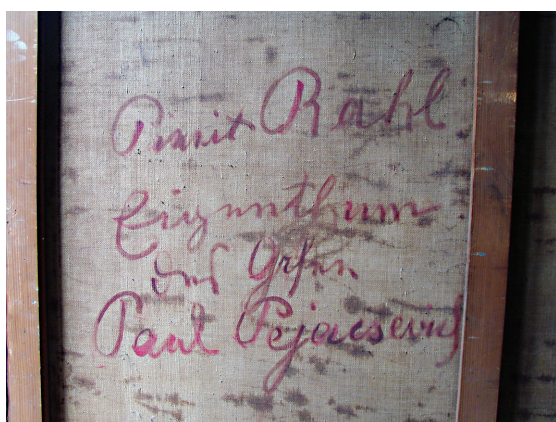 Pinxit Rahl
Eigenthum
des Grfen
Paul Pejacsevich